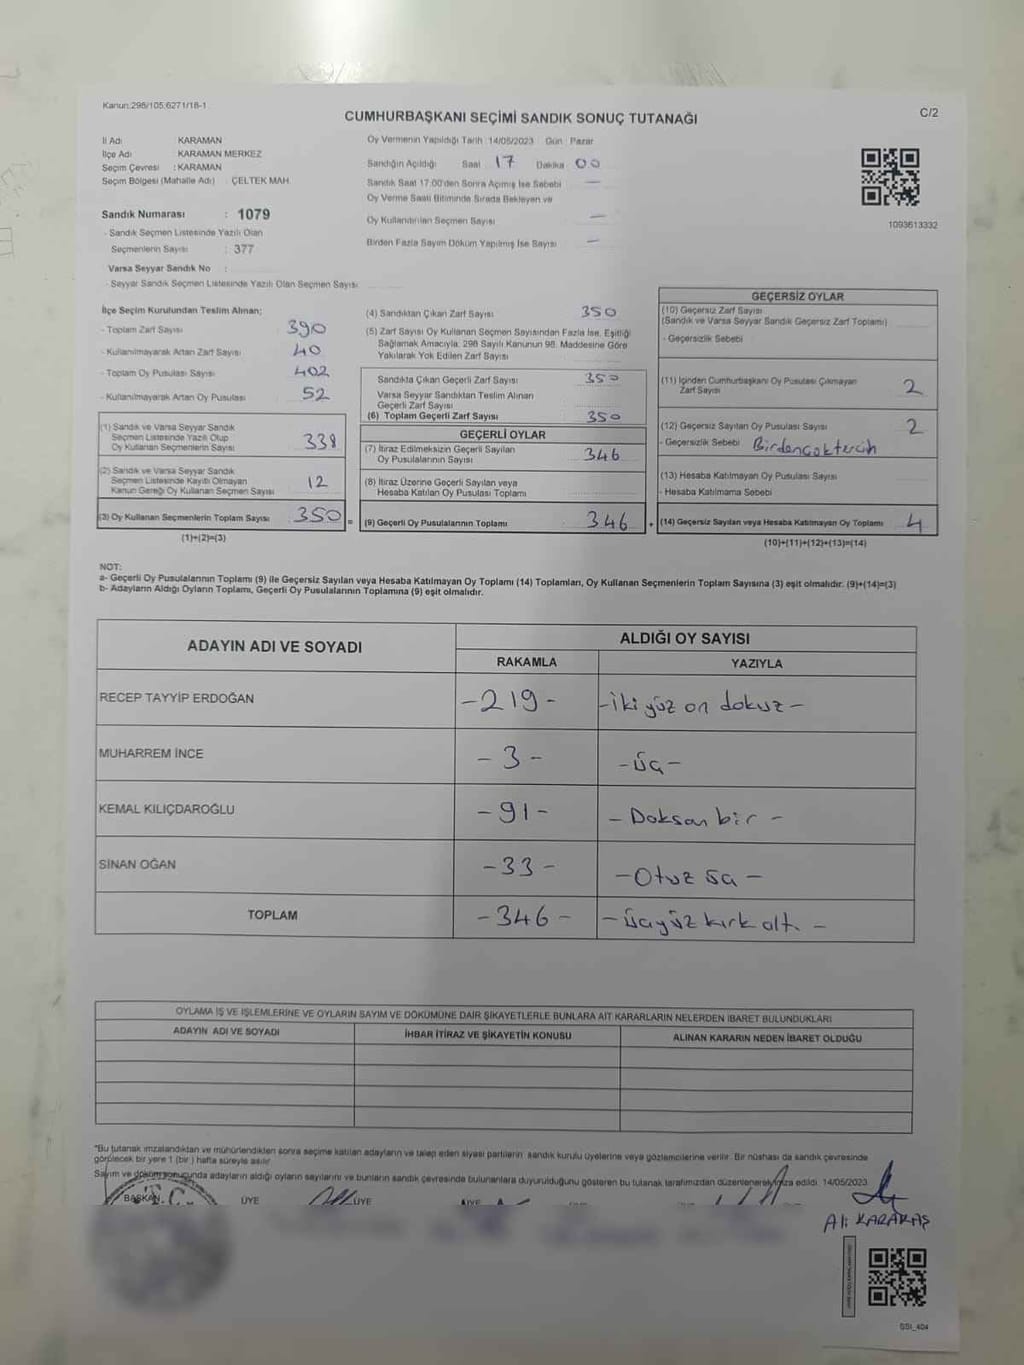 Kanun:298/105,6271/18-1
C/2
CUMHURBAŞKANI SEÇİMİ SANDIK SONUÇ TUTANAĞI
İl Adı : KARAMAN
İlçe Adı : KARAMAN MERKEZ
Seçim Çevresi : KARAMAN
Seçim Bölgesi (Mahalle Adı) : ÇELTEK MAH.
Sandık Numarası : 1079
- Sandık Seçmen Listesinde Yazılı Olan
Seçmenlerin Sayısı : 377
Varsa Seyyar Sandık No :
- Seyyar Sandık Seçmen Listesinde Yazılı Olan Seçmen Sayısı
Oy Vermenin Yapıldığı Tarih : 14/05/2023 Gün : Pazar
Sandığın Açıldığı Saat 17 Dakika 00
Sandık Saat 17:00'den Sonra Açılmış İse Sebebi —
Oy Verme Saati Bitiminde Sırada Bekleyen ve
Oy Kullandırılan Seçmen Sayısı —
Birden Fazla Sayım Döküm Yapılmış İse Sayısı —
1093613332
İlçe Seçim Kurulundan Teslim Alınan;
- Toplam Zarf Sayısı 390
- Kullanılmayarak Artan Zarf Sayısı 40
- Toplam Oy Pusulası Sayısı 402
- Kullanılmayarak Artan Oy Pusulası 52
(1) Sandık ve Varsa Seyyar Sandık
Seçmen Listesinde Yazılı Olup
Oy Kullanan Seçmenlerin Sayısı 338
(2) Sandık ve Varsa Seyyar Sandık
Seçmen Listesinde Kayıtlı Olmayan
Kanun Gereği Oy Kullanan Seçmen Sayısı 12
(3) Oy Kullanan Seçmenlerin Toplam Sayısı 350 =
(1)+(2)=(3)
(4) Sandıktan Çıkan Zarf Sayısı 350
(5) Zarf Sayısı Oy Kullanan Seçmen Sayısından Fazla İse, Eşitliği
Sağlamak Amacıyla; 298 Sayılı Kanunun 98. Maddesine Göre
Yakılarak Yok Edilen Zarf Sayısı
Sandıkta Çıkan Geçerli Zarf Sayısı 350
Varsa Seyyar Sandıktan Teslim Alınan
Geçerli Zarf Sayısı
(6) Toplam Geçerli Zarf Sayısı 350
GEÇERLİ OYLAR
(7) İtiraz Edilmeksizin Geçerli Sayılan
Oy Pusulalarının Sayısı 346
(8) İtiraz Üzerine Geçerli Sayılan veya
Hesaba Katılan Oy Pusulası Toplamı
(9) Geçerli Oy Pusulalarının Toplamı 346 +
GEÇERSİZ OYLAR
(10) Geçersiz Zarf Sayısı
(Sandık ve Varsa Seyyar Sandık Geçersiz Zarf Toplamı)
- Geçersizlik Sebebi
(11) İçinden Cumhurbaşkanı Oy Pusulası Çıkmayan
Zarf Sayısı 2
(12) Geçersiz Sayılan Oy Pusulası Sayısı 2
- Geçersizlik Sebebi Birden çok tercih
(13) Hesaba Katılmayan Oy Pusulası Sayısı
- Hesaba Katılmama Sebebi
(14) Geçersiz Sayılan veya Hesaba Katılmayan Oy Toplamı 4
(10)+(11)+(12)+(13)=(14)
NOT:
a- Geçerli Oy Pusulalarının Toplamı (9) ile Geçersiz Sayılan veya Hesaba Katılmayan Oy Toplamı (14) Toplamları, Oy Kullanan Seçmenlerin Toplam Sayısına (3) eşit olmalıdır. (9)+(14)=(3)
b- Adayların Aldığı Oyların Toplamı, Geçerli Oy Pusulalarının Toplamına (9) eşit olmalıdır.
ADAYIN ADI VE SOYADI ALDIĞI OY SAYISI
RAKAMLA YAZIYLA
RECEP TAYYİP ERDOĞAN -219- -iki yüz on dokuz-
MUHARREM İNCE -3- -üç-
KEMAL KILIÇDAROĞLU -91- -Doksan bir-
SİNAN OĞAN -33- -Otuz üç-
TOPLAM -346- -üçyüz kırk altı-
OYLAMA İŞ VE İŞLEMLERİNE VE OYLARIN SAYIM VE DÖKÜMÜNE DAİR ŞİKAYETLERLE BUNLARA AİT KARARLARIN NELERDEN İBARET BULUNDUKLARI
ADAYIN ADI VE SOYADI İHBAR İTİRAZ VE ŞİKAYETİN KONUSU ALINAN KARARIN NEDEN İBARET OLDUĞU
*Bu tutanak imzalandıktan ve mühürlendikten sonra seçime katılan adayların ve talep eden siyasi partilerin sandık kurulu üyelerine veya gözlemcilerine verilir. Bir nüshası da sandık çevresinde
görülecek bir yere 1 (bir) hafta süreyle asılır.
Sayım ve döküm sonucunda adayların aldığı oyların sayılarını ve bunların sandık çevresinde bulunanlara duyurulduğunu gösteren bu tutanak tarafımızdan düzenlenerek imza edildi. 14/05/2023
BAŞKAN T.C. ÜYE ÜYE
Ali KARAKAŞ
GSI_404